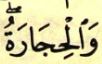 وَٱلْحِجَارَةُۖ